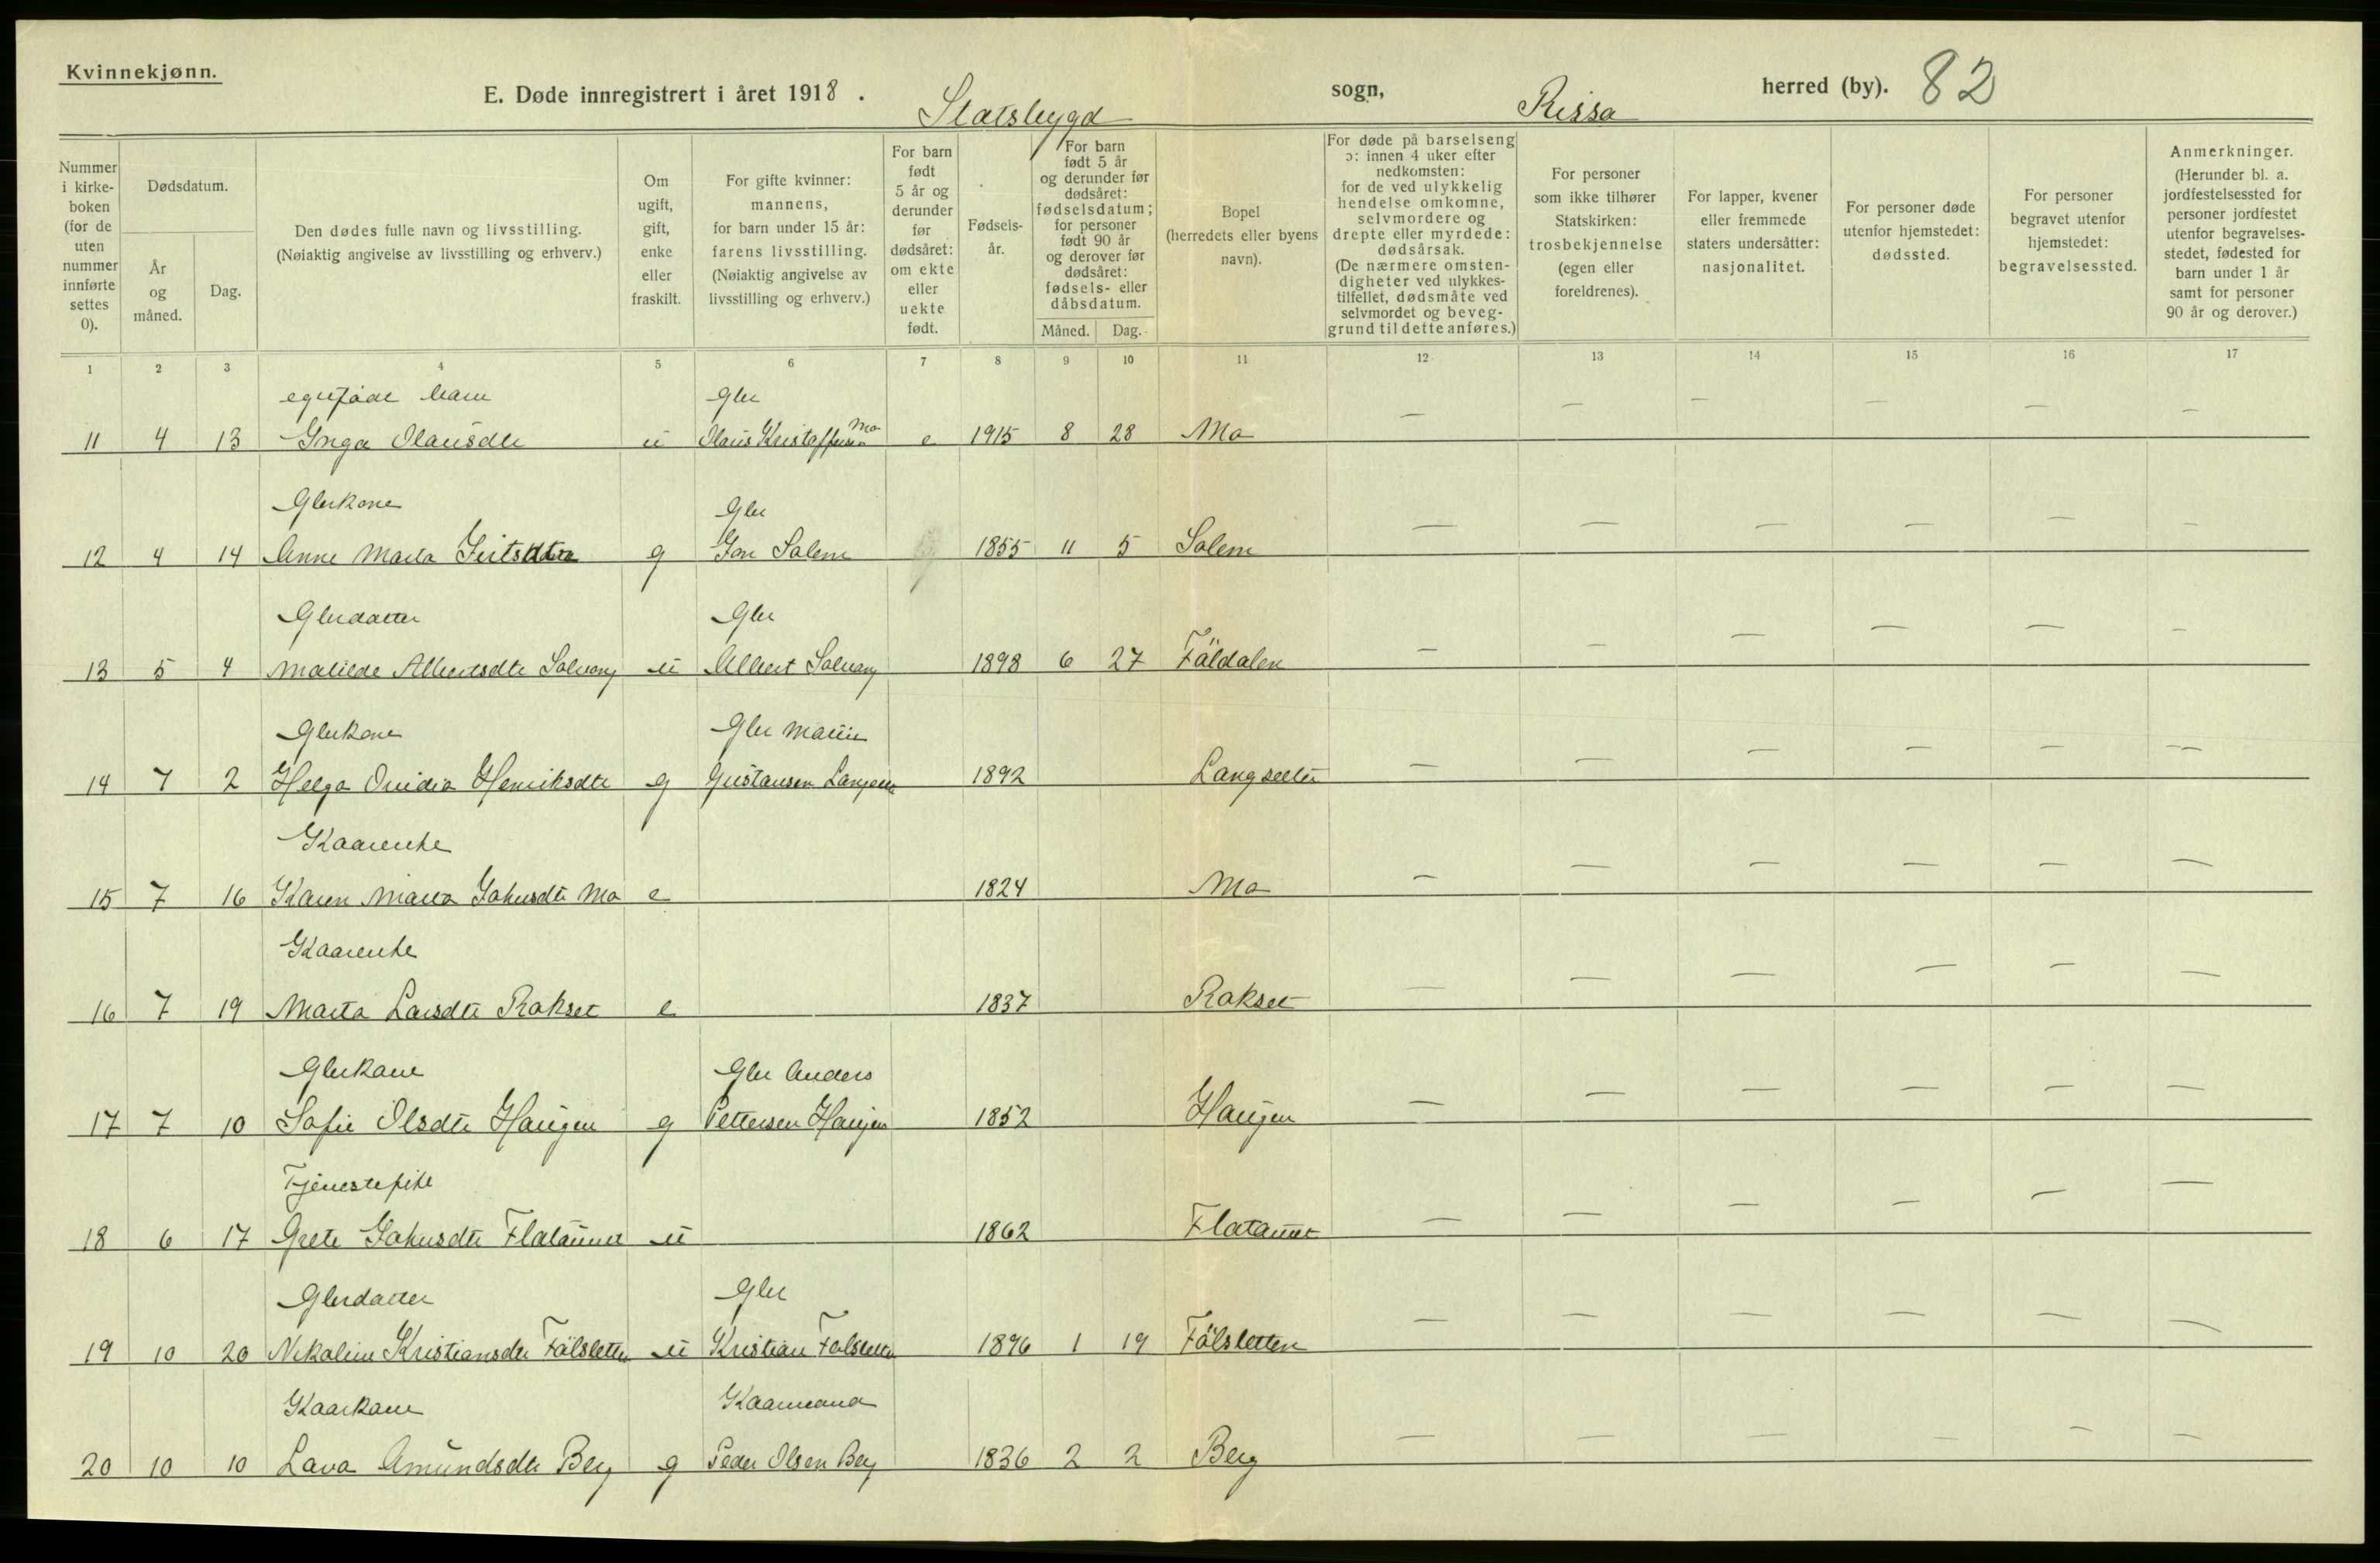 Kvinnekjønn.
E. Døde innregistrert i året 1918. Statsbygd sogn, Rissa herred (by). 82
Nummer i kirke-boken (for de uten nummer innførte settes 0).
Dødsdatum.
År og måned.
Dag.
Den dødes fulle navn og livsstilling.
(Nøiaktig angivelse av livsstilling og erhverv.)
Om ugift, gift, enke eller fraskilt.
For gifte kvinner: mannens, for barn under 15 år: farens livsstilling. (Nøiaktig angivelse av livsstilling og erhverv.)
For barn født 5 år og derunder før dødsåret: om ekte eller uekte født.
Fødsels-år.
For barn født 5 år og derunder før dødsåret: fødselsdatum; for personer født 90 år og derover før dødsåret: fødsels- eller dåbsdatum.
Måned. Dag.
Bopel (herredets eller byens navn).
For døde på barselseng ɔ: innen 4 uker efter nedkomsten: for de ved ulykkelig hendelse omkomne, selvmordere og drepte eller myrdede: dødsårsak. (De nærmere omsten-digheter ved ulykkes-tilfellet, dødsmåte ved selvmordet og beveg-grund til dette anføres.)
For personer som ikke tilhører Statskirken: trosbekjennelse (egen eller foreldrenes).
For lapper, kvener eller fremmede staters undersåtter: nasjonalitet.
For personer døde utenfor hjemstedet: dødssted.
For personer begravet utenfor hjemstedet: begravelsessted.
Anmerkninger. (Herunder bl. a. jordfestelsessted for personer jordfestet utenfor begravelses-stedet, fødested for barn under 1 år samt for personer 90 år og derover.)
1 2 3 4 5 6 7 8 9 10 11 12 13 14 15 16 17
egtefødt barn Gbr — — — — — —
11 4 13 Inga Olausdtr u Olaus Kristoffersen Mo e 1915 8 28 Mo
Gbrkone Gbr — — — — — —
12 4 14 Anne Marta g Jon Solem 1855 11 5 Solem
Gbrdatter Gbr — — — — — —
13 5 4 Matilde Albertsdtr Solvang u Albert Solvang 1898 6 27 Fåldalen
Gbrkone Gbr — — — — — —
14 7 2 Helga Ovidia Henriksdtr g Gustavsen 1892 Langseter
Kaarenke — — — — — —
15 7 16 Karen Marta Johnsdtr Mo e 1824 Mo
Kaarenke — — — — — —
16 7 19 Marta Larsdtr Rakset e 1837 Rakset
Gbrkone Gbr Anders — — — — — —
17 7 10 Sofie Olsdtr Haugen g Pettersen Haugen 1852 Haugen
Tjenestepike — — — — — —
18 6 17 Grete Johnsdtr Flataunet u 1862 Flataunet
Gbrdatter Gbr — — — — — —
19 10 20 Nikoline Kristiansdtr Fålsletten u Kristian Fålsletten 1896 1 19 Fålsletten
Kaarkone Kaarmand — — — — — —
20 10 10 Lava Amundsdtr Berg g Peder Olsen Berg 1836 2 2 Berg